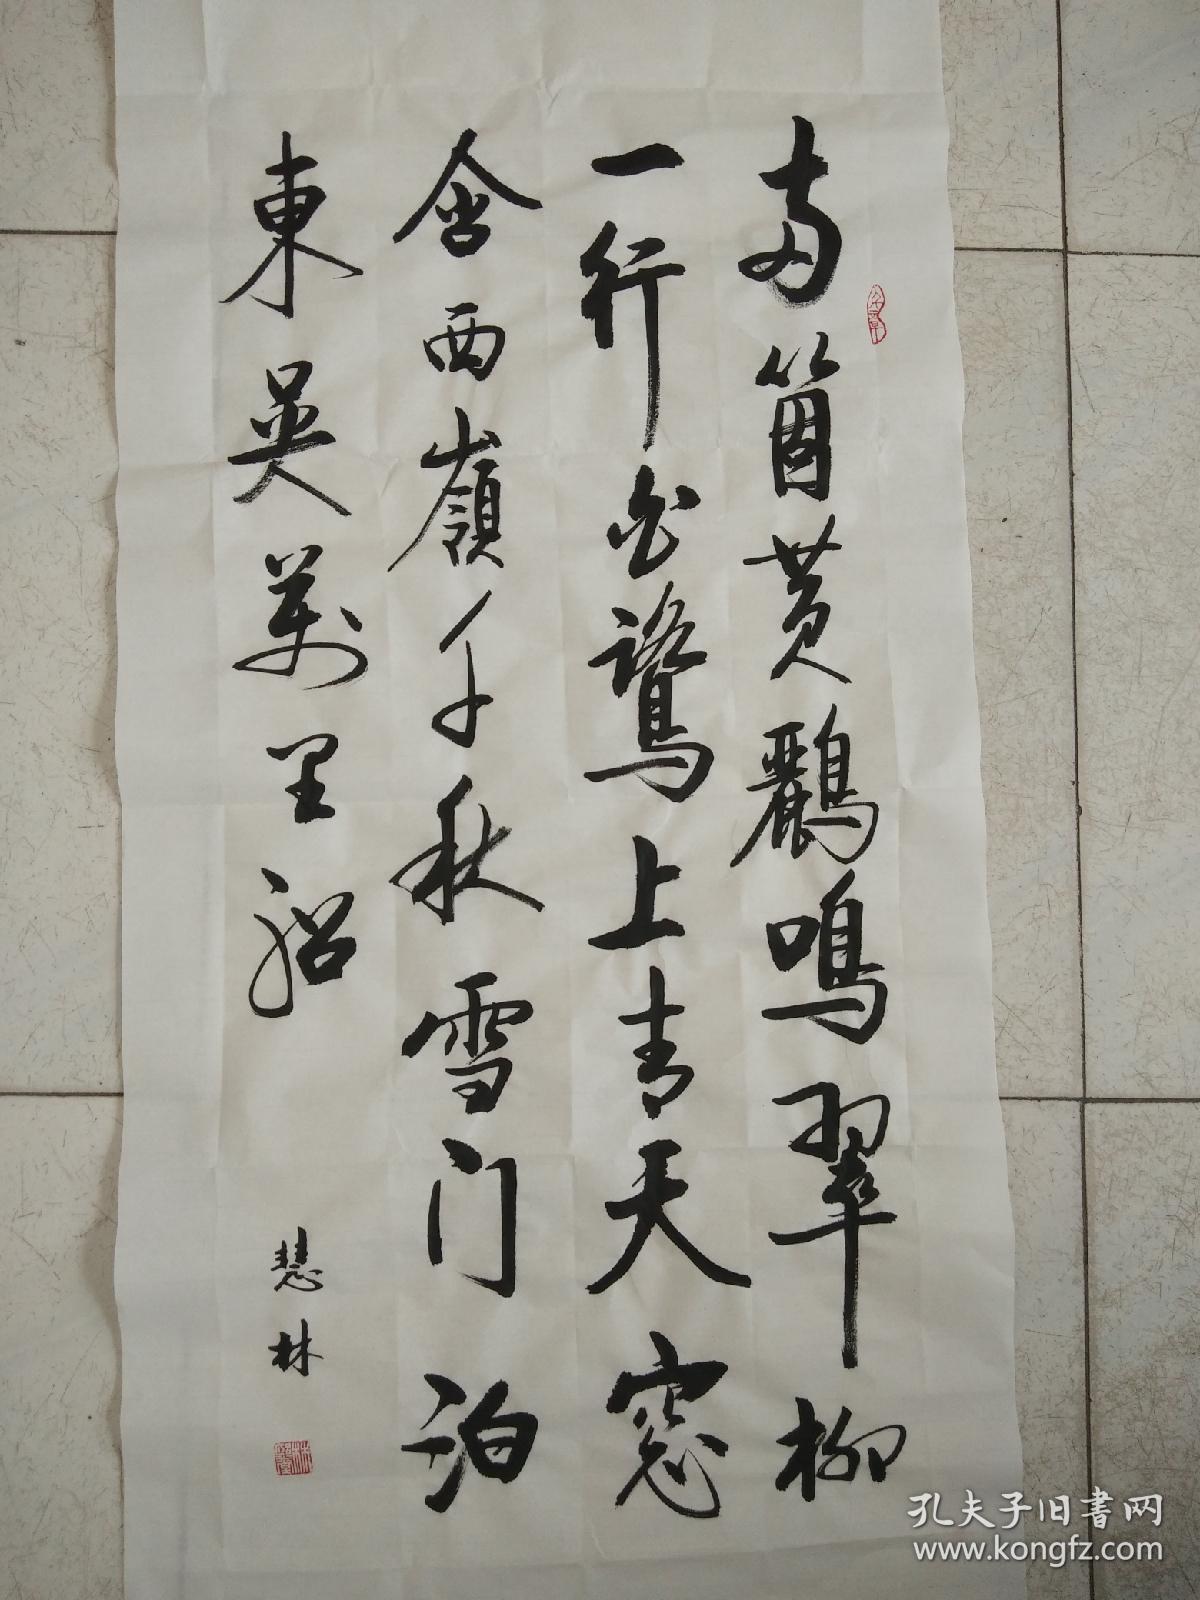 両箇黄鸝鳴翠柳
一行白鷺上青天窓
含西嶺千秋雪门泊
東吴萬里船
慧林
孔夫子旧书网
www.kongfz.com